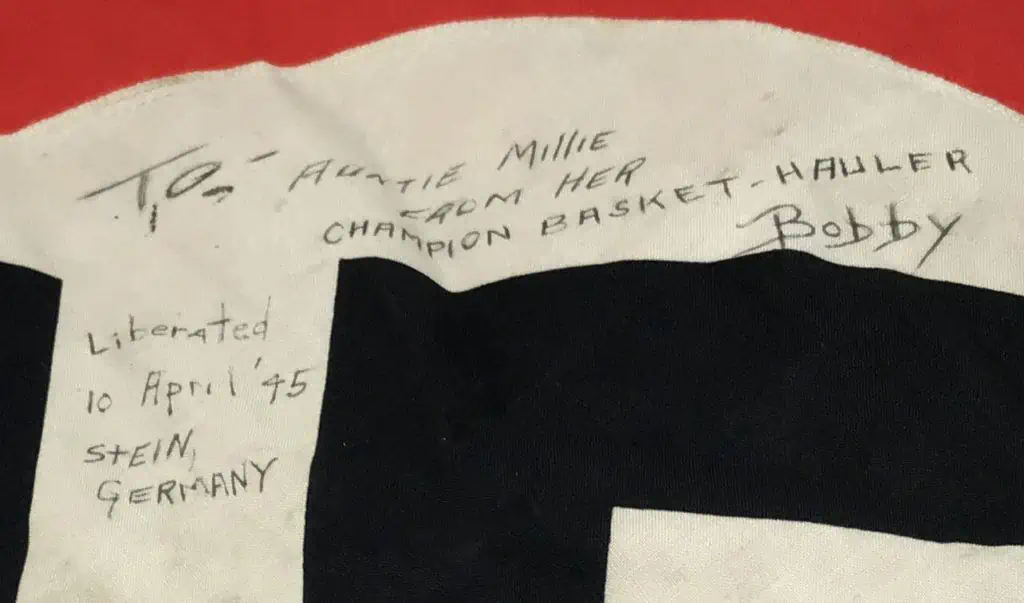 To:- AUNTIE MILLIE
FROM HER
CHAMPION BASKET-HAULER
Bobby
Liberated
10 April '45
STEIN,
GERMANY